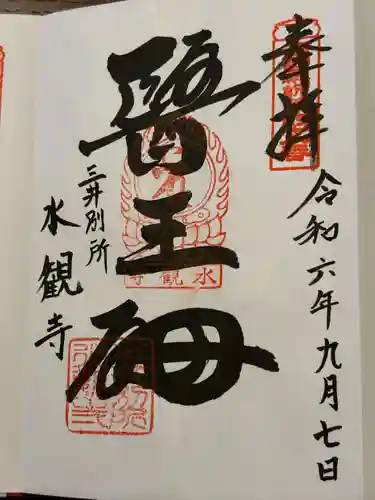 奉拝
令和六年九月七日
醫王殿
三井別所
水観寺
水観寺